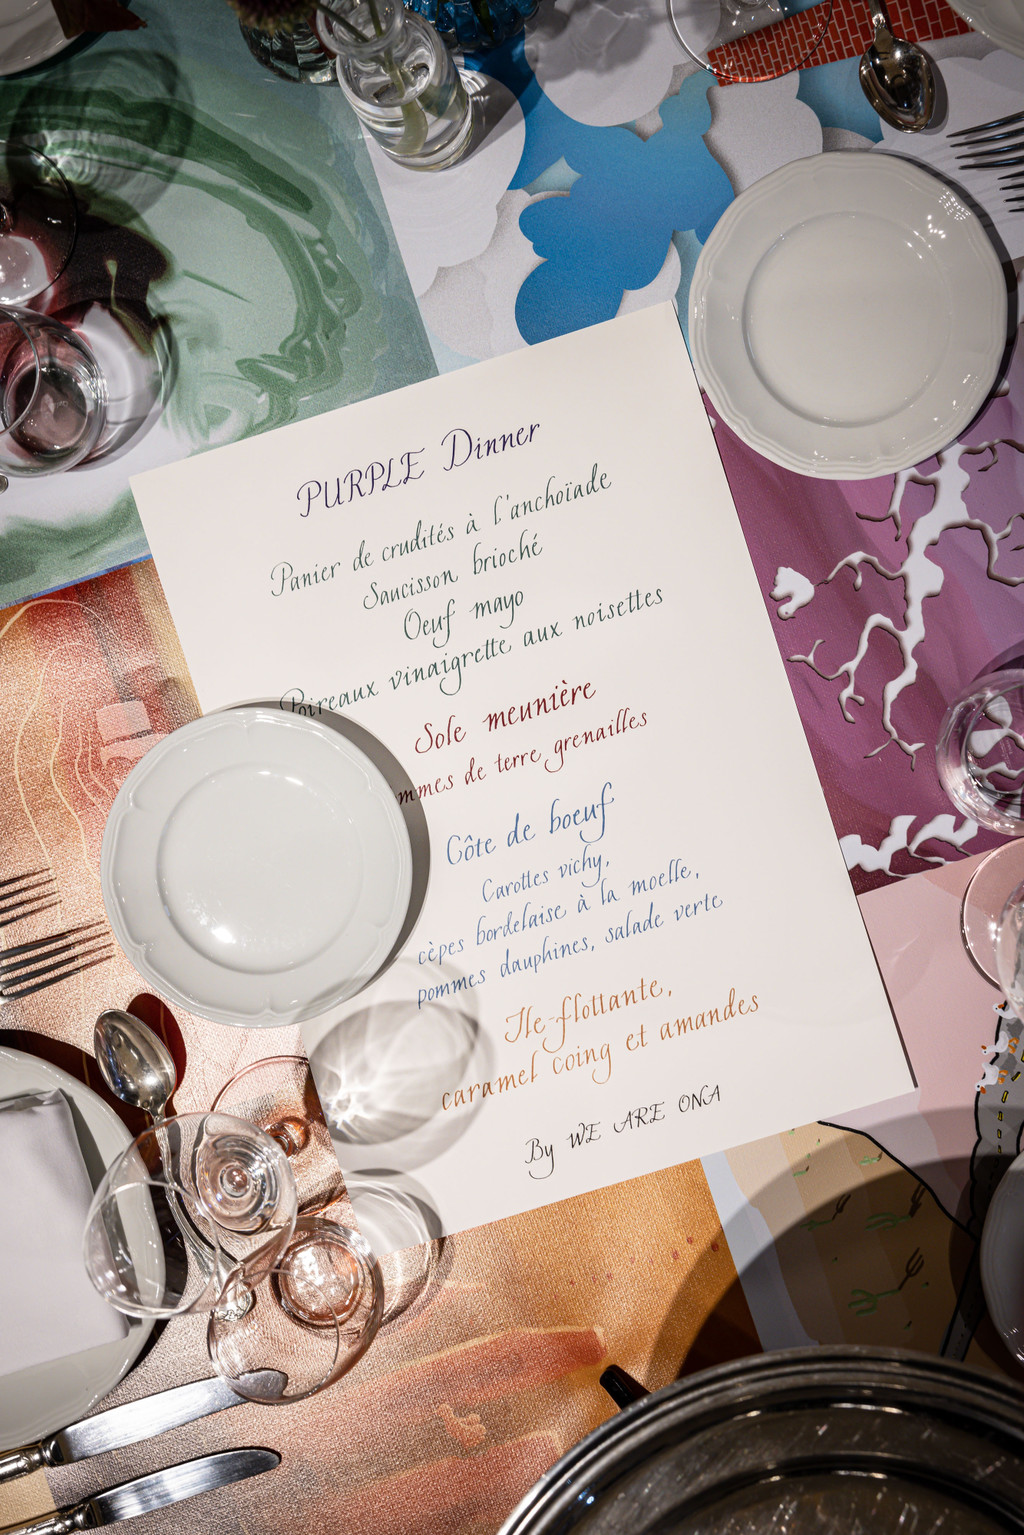 PURPLE Dinner
Panier de crudités à l'anchoïade
Saucisson brioché
Oeuf mayo
Poireaux vinaigrette aux noisettes
Sole meunière
mmes de terre grenailles
Côte de boeuf
Carottes vichy,
cèpes bordelaise à la moelle,
pommes dauphines, salade verte
Ile-flottante,
caramel coing et amandes
By WE ARE ONA